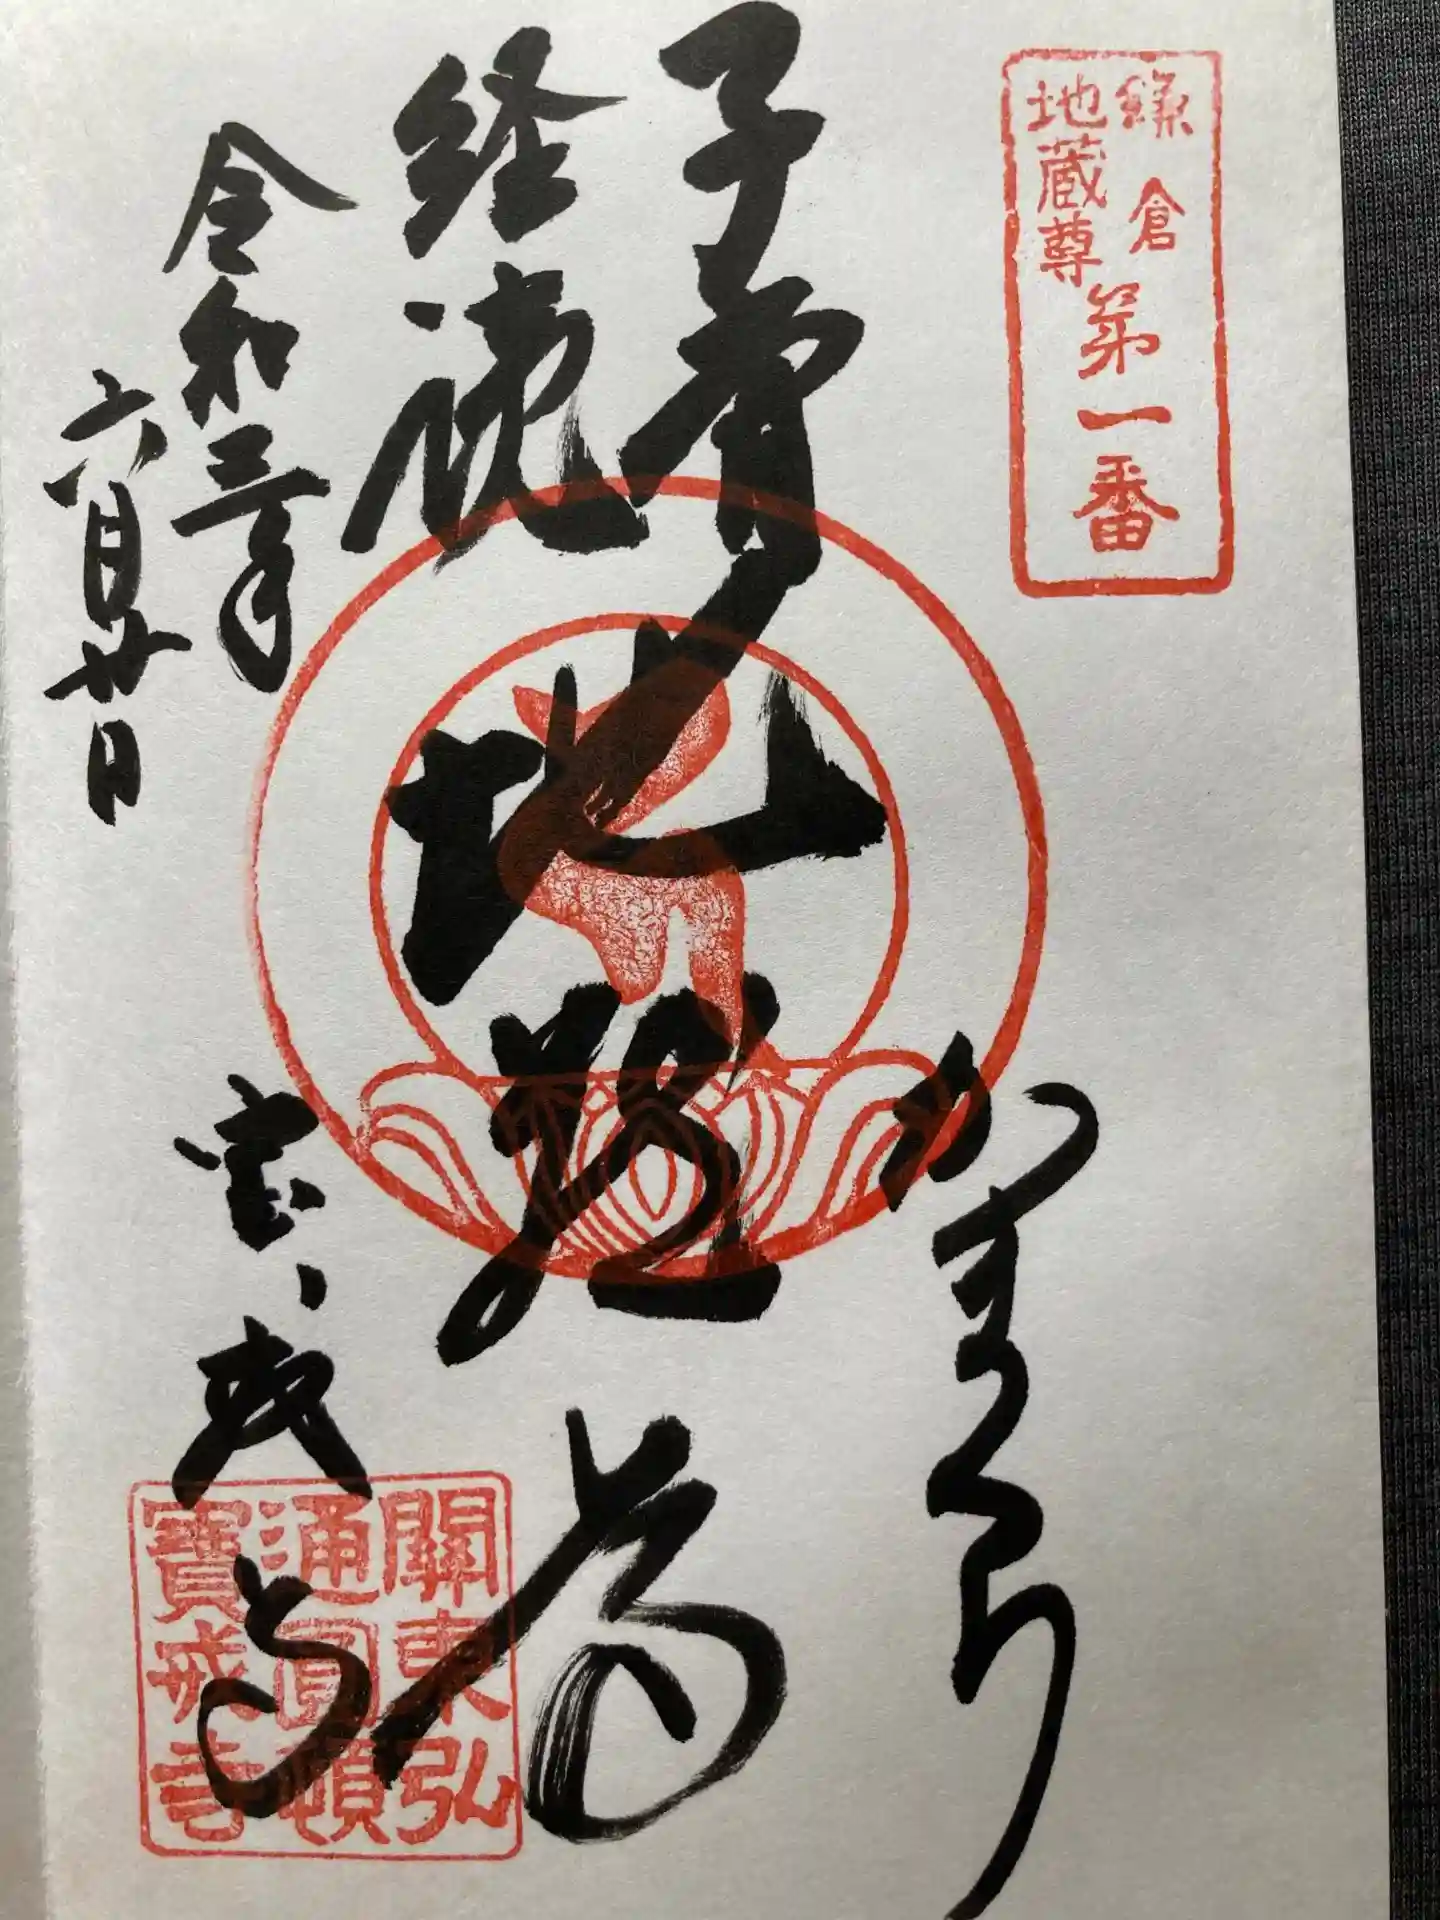 鎌倉
地蔵尊
第一番
かまくら
子育
経読
地蔵尊
令和三年
六月廿日
宝戒寺
關東弘
通圓頓
寶戒寺